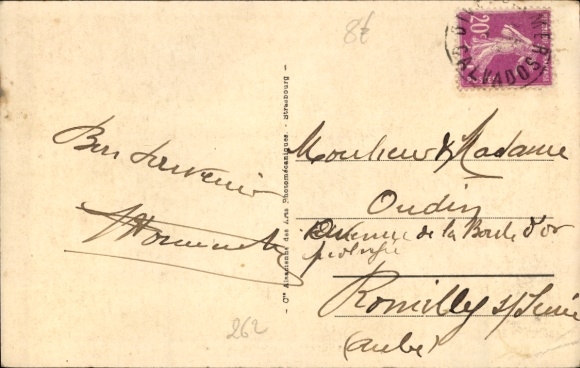 8f
20c
CALVADOS
Bon souvenir
Cie Alsacienne des Arts Photomécaniques. - Strasbourg
Monsieur & Madame
Oudin
Avenue de la Boule d'or
prolongée
Romilly s/Seine
(Aube)
262